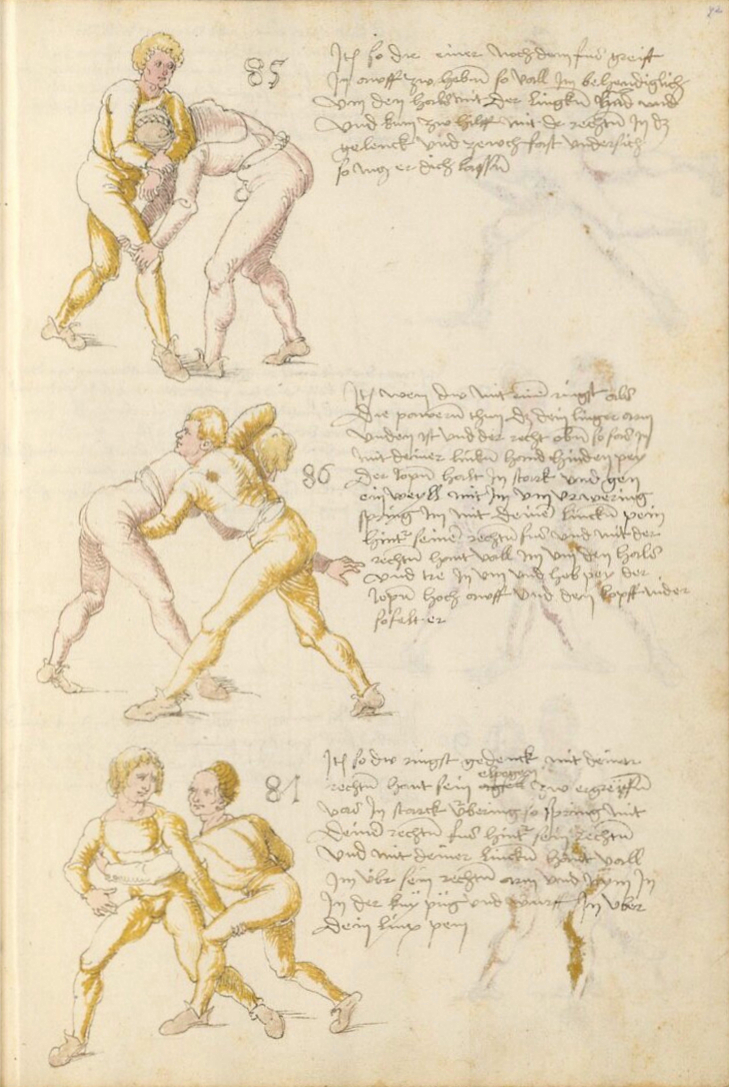 85
Itͫ so dir einer noch dem fus greift
In auff zw hebn̄ so vall Im behendiglich
vm den hals mit der linckn̄ hand
vnd kum zw hilff mit der rechtn̄ In dz
gelenck vnd zewch fast vndersich
so mus er dich lassn̄
86
Itͫ wen dw mit eim̄ ringst als
die pawern̄ thun dz dein lincger arm
vnden ist vnd der recht obn̄ so fas In
mit deiner linckn̄ hand hinden pey
der Jopn̄ halt In starck vnd gen
ein weyll mit Im vm
spring Im mit deinē linckn̄ pein
hintͬ seinē rechtn̄ fus vnd mit der
rechtn̄ hant vall Im vm den hals
vnd tre In vm vnd heb pey der
Jopn̄ hoch auff vnd den kopff nider
so felt er
81
Itͫ so dw ringst gedenck mit deiner
rechtn̄ hant sein elpogen zw ergreiffn̄
vas In starck so spring mit
deinē rechtn̄ fus hintͬ sein̄ rechtn̄
vnd mit deiner linckn̄ hant vall
Im vbr sein rechtn̄ arm vnd nym In
In der kny pug vnd wurff In vber
dein linx pein